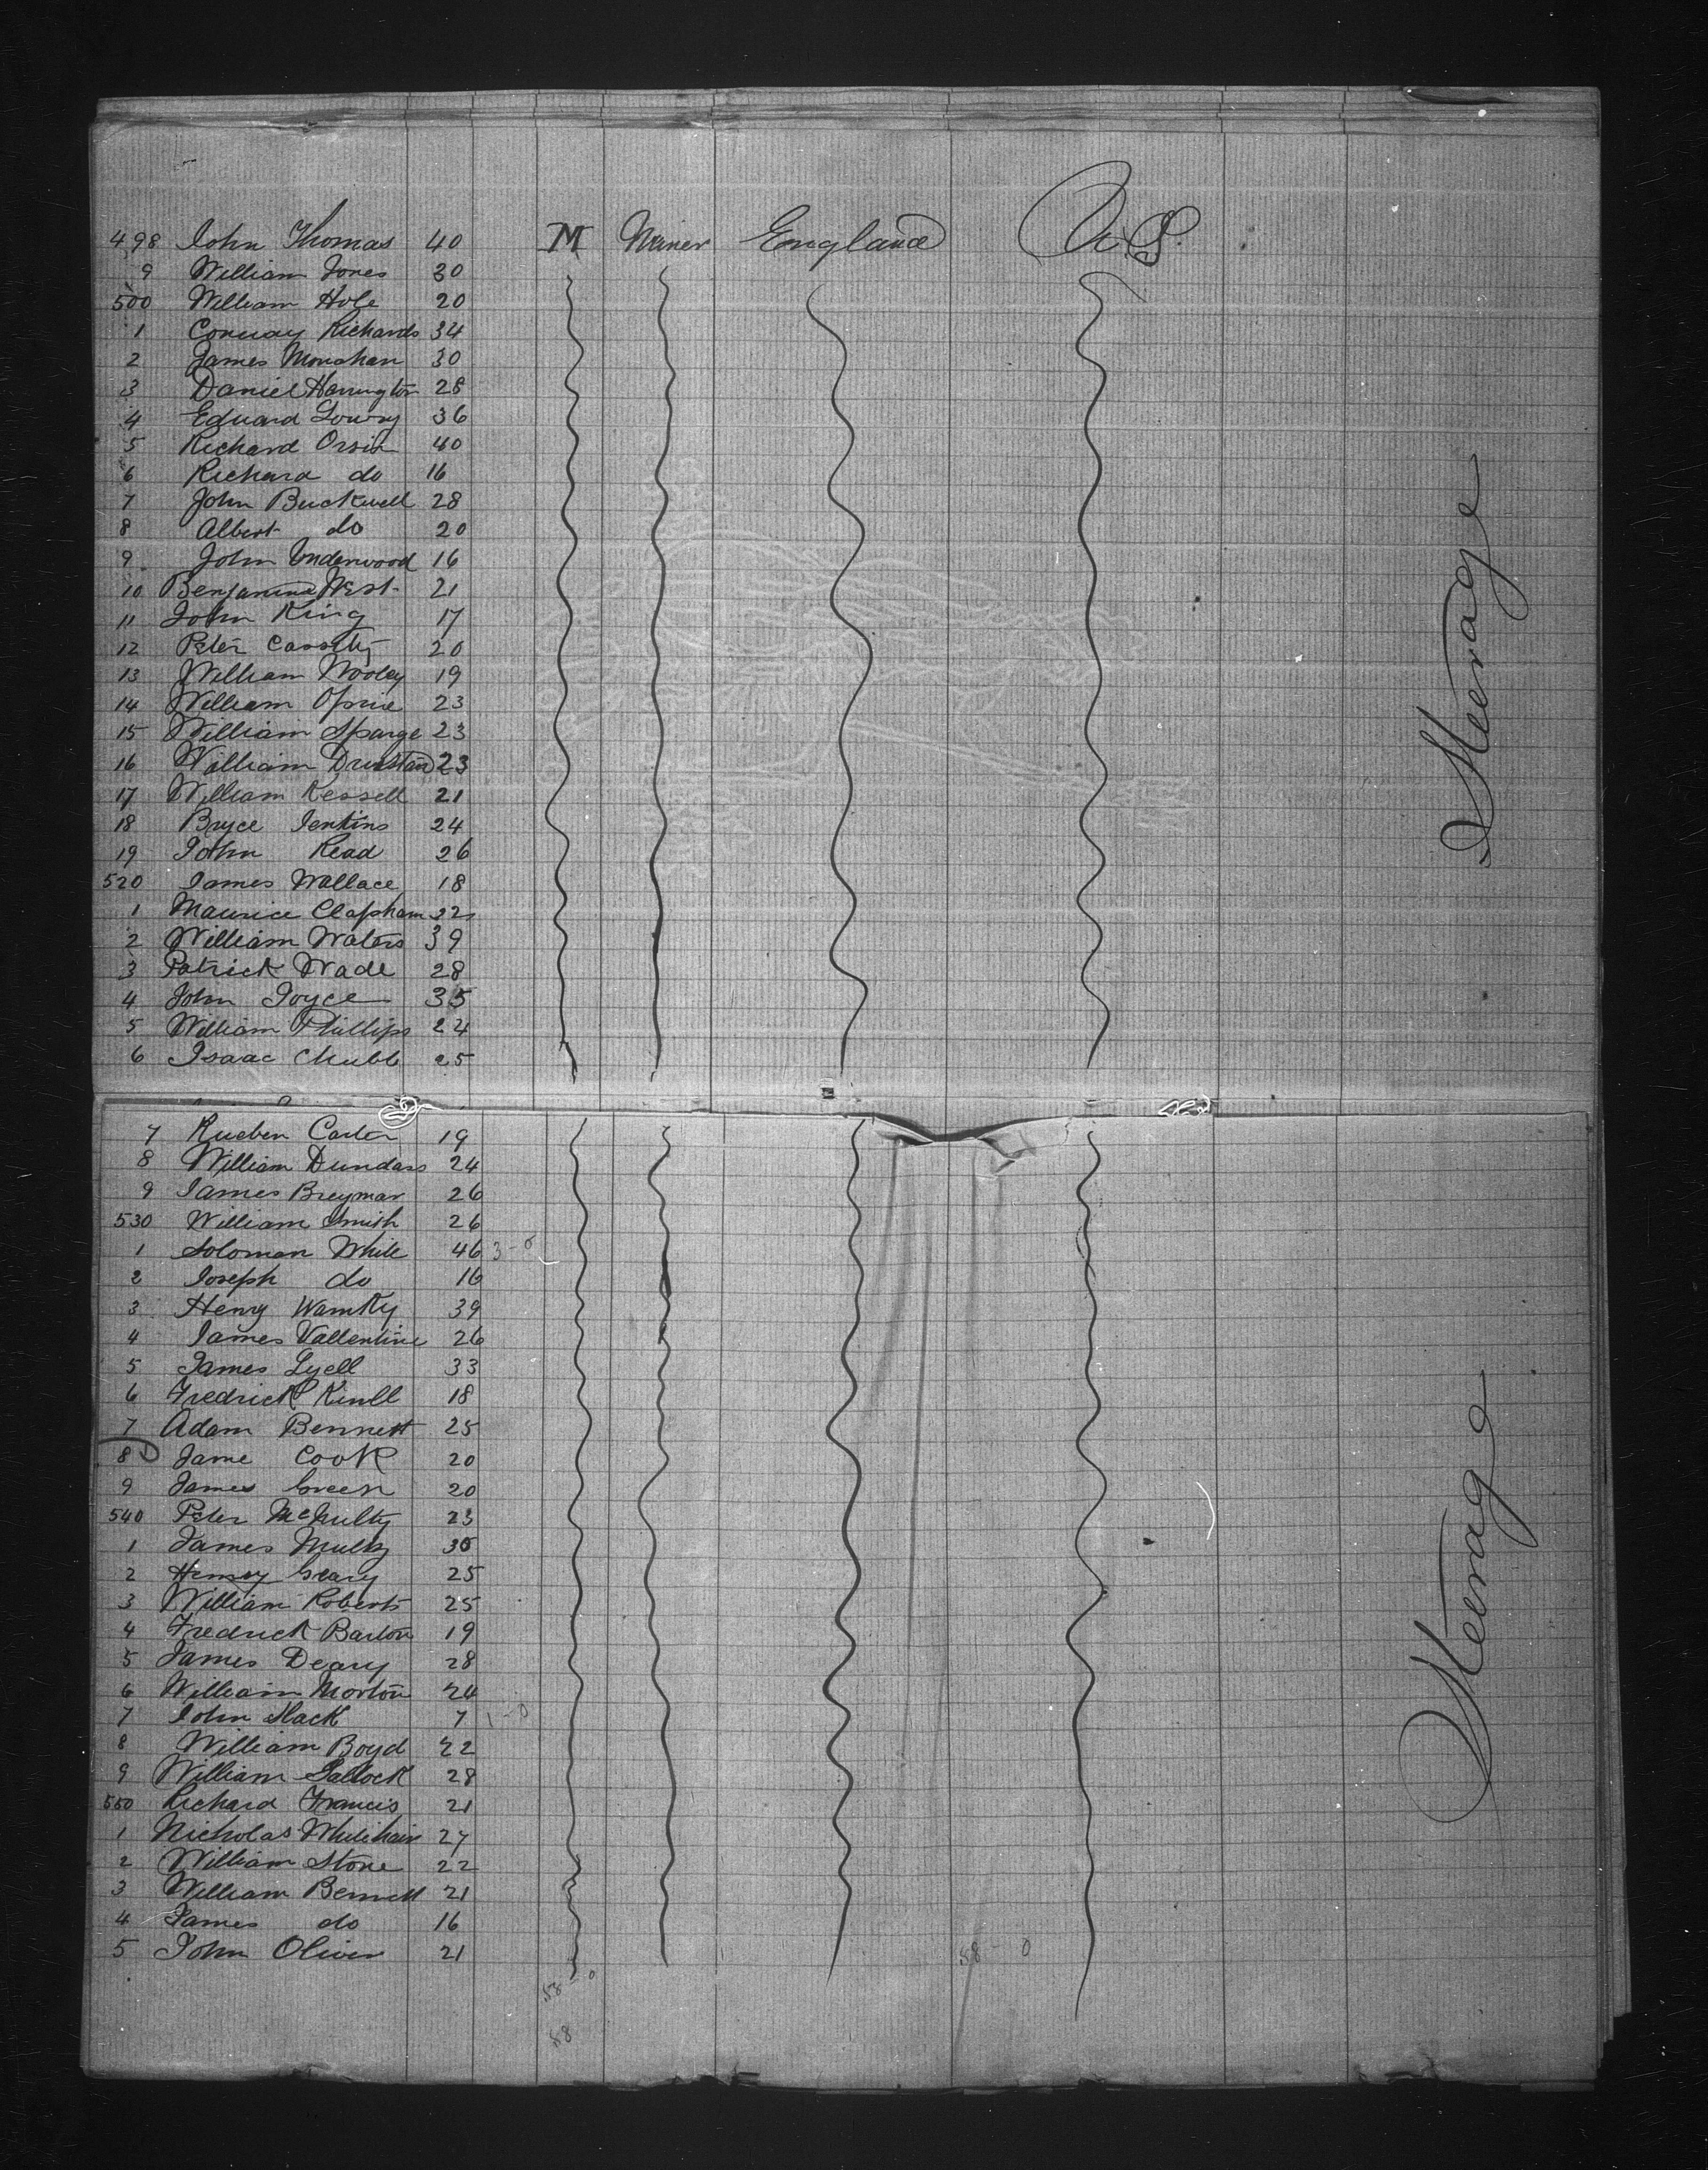 498 John Thomas 40 M Miner England U.S.
9 William Jones 30
500 William Hole 20
1 Conway Richards 34
2 James Monahan 30
3 Daniel Harrington 28
4 Edward Lowry 36
5 Richard 40
6 Richard do 16
7 John Buckwell 28
8 Albert do 20
9 John Underwood 16
10 Benjamin West 21
11 John King 17
12 Peter Cassidy 20
13 William Wooley 19
14 William Opie 23
15 William Sparge 23
16 William 23
17 William Kessell 21
18 Bryce Jenkins 24
19 John Read 26
520 James Wallace 18
1 Maurice Clapham 22
2 William Waters 39
3 Patrick Wade 28
4 John Joyce 35
5 William Phillips 24
6 Isaac Chubb 25
Steerage
7 Rueben Carter 19
8 William Dundass 24
9 James 26
530 William Smith 26
1 Soloman White 46 3-0
2 Joseph do 16
3 Henry 39
4 James Vallentine 26
5 James Lyell 33
6 Fredrick 18
7 Adam Bennett 25
8 Jame Cook 20
9 James Green 20
540 Peter McNulty 23
1 James 30
2 Henry Geary 25
3 William Roberts 25
4 Fredrick Barton 19
5 James Deary 28
6 William Morton 24
7 John Slack 7 1-0
8 William Boyd 22
9 William 28
550 Richard Francis 21
1 Nicholas 27
2 William Stone 22
3 William Bennett 21
4 James do 16
5 John Oliver 21
Steerag
58-0 58-0
58